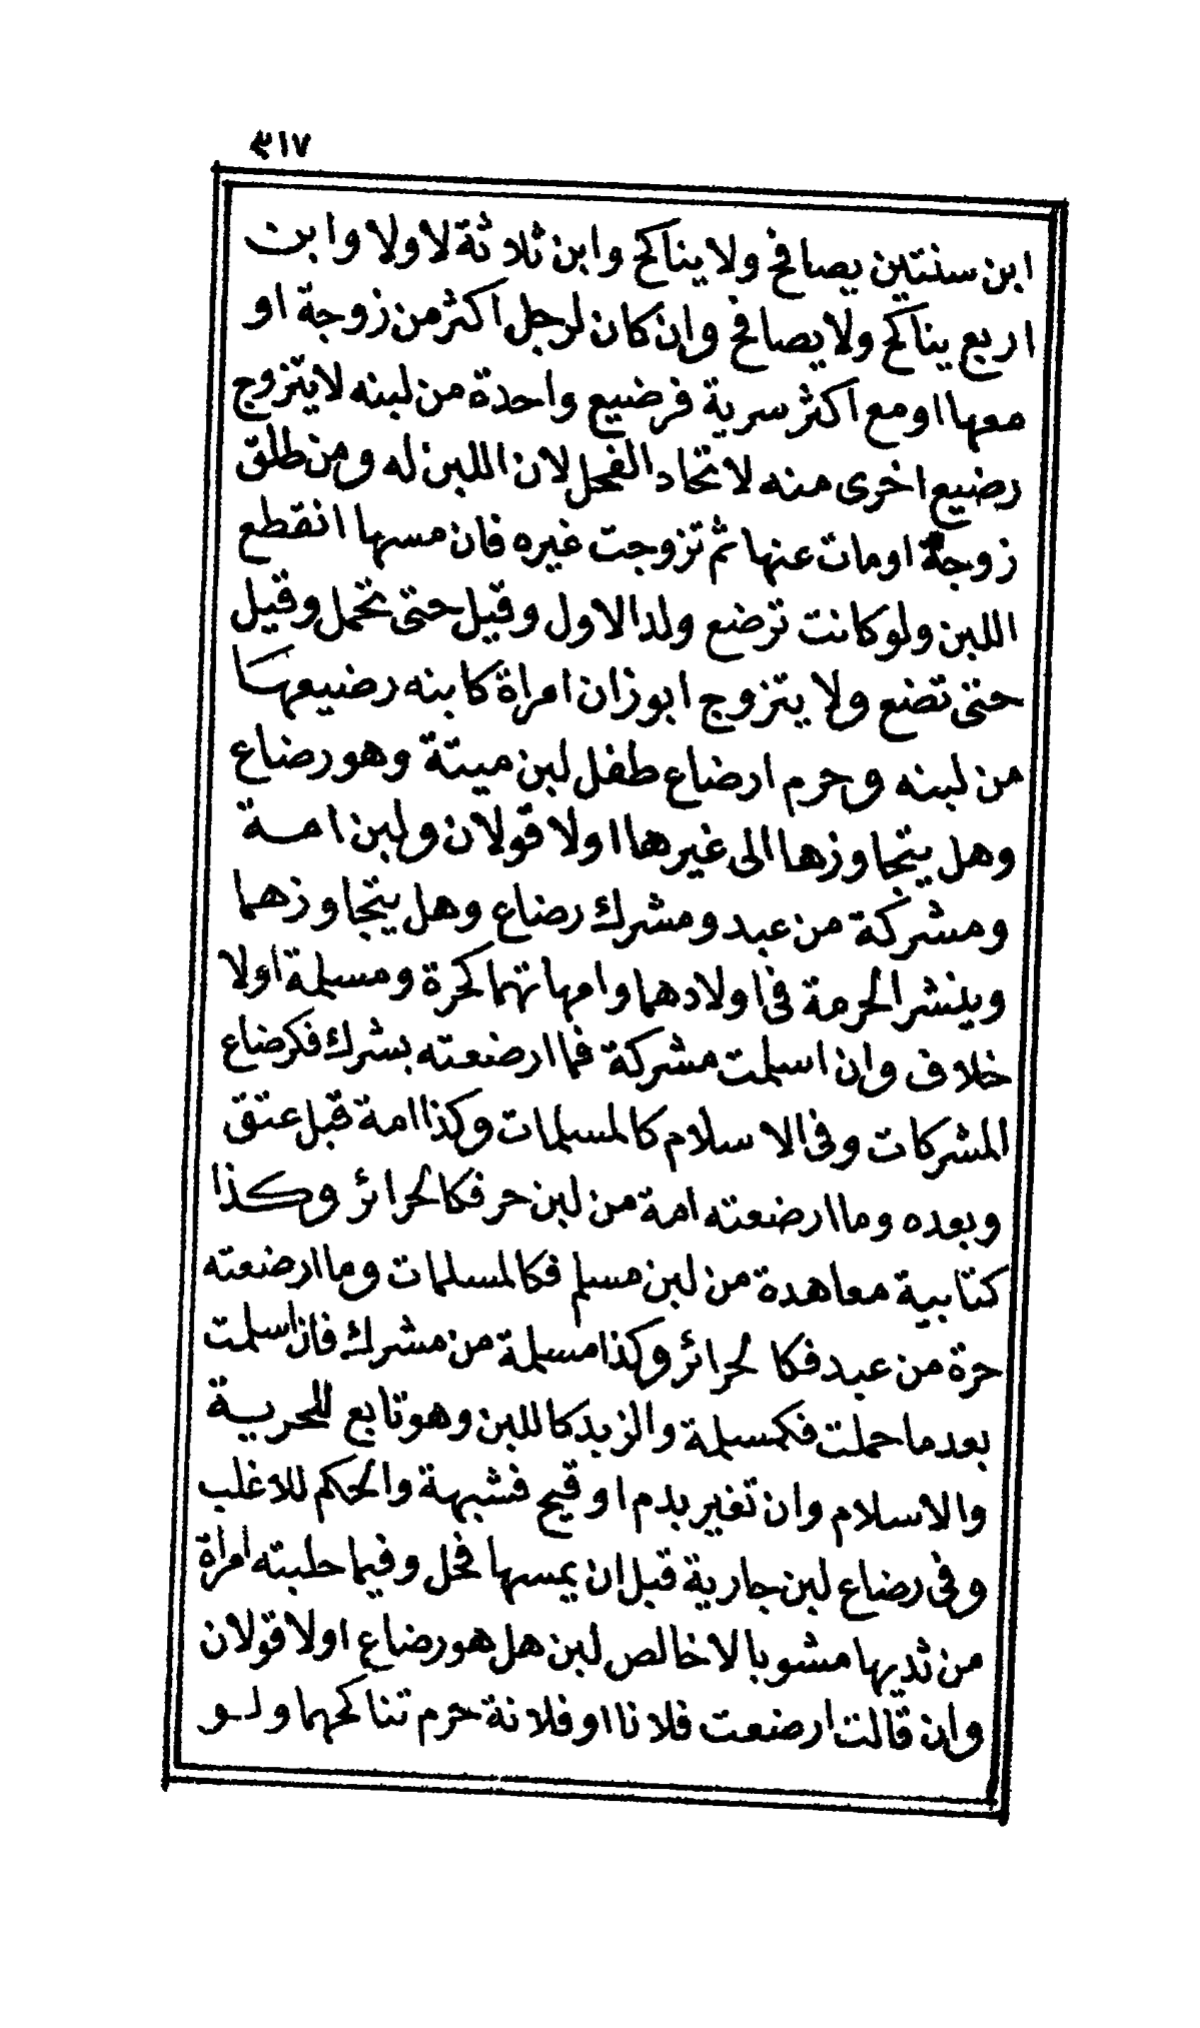 ٣١٧
ابن سنتين يصافح ولا يناكح وابن ثلاثة لا ولا وابن
اربع يناكح ولا يصافح وان كان لرجل اكثر من زوجة او
معها او مع اكثر سرية فرضيع واحدة من لبنه لا يتزوج
رضيع اخرى منه لاتحاد الفحل لان اللبن له ومن طلق
زوجة او مات عنها ثم تزوجت غيره فان مسها انقطع
اللبن ولو كانت ترضع ولد الاول وقيل حتى تحمل وقيل
حتى تضع ولا يتزوج ابو زان امراة كابنه رضيعها
من لبنه وحرم ارضاع طفل لبن ميتة وهو رضاع
وهل يتجاوزها الى غيرها اولا قولان ولبن امة
ومشركة من عبد ومشرك رضاع وهل يتجاوزهما
وينشر الحرمة فى اولادهما وامهاتهما كحرة ومسلمة اولا
خلاف وان اسلمت مشركة فما ارضعته بشرك فكرضاع
المشركات وفى الاسلام كالمسلمات وكذا امة قبل عتق
وبعده وما ارضعته امة من لبن حر فكالحرائر وكذا
كتابية معاهدة من لبن مسلم فكالمسلمات وما ارضعته
حرة من عبد فكالحرائر وكذا مسلمة من مشرك فان اسلمت
بعد ما حملت فكمسلمة والزبد كاللبن وهو تابع للحرية
والاسلام وان تغير بدم او قيح فشبهة والحكم للاغلب
وفى رضاع لبن جارية قبل ان يمسها فحل وفيما حلبته امراة
من ثديها مشوبا لا خالص لبن هل هو رضاع اولا قولان
وان قالت ارضعت فلانا او فلانة حرم تناكحهما ولو